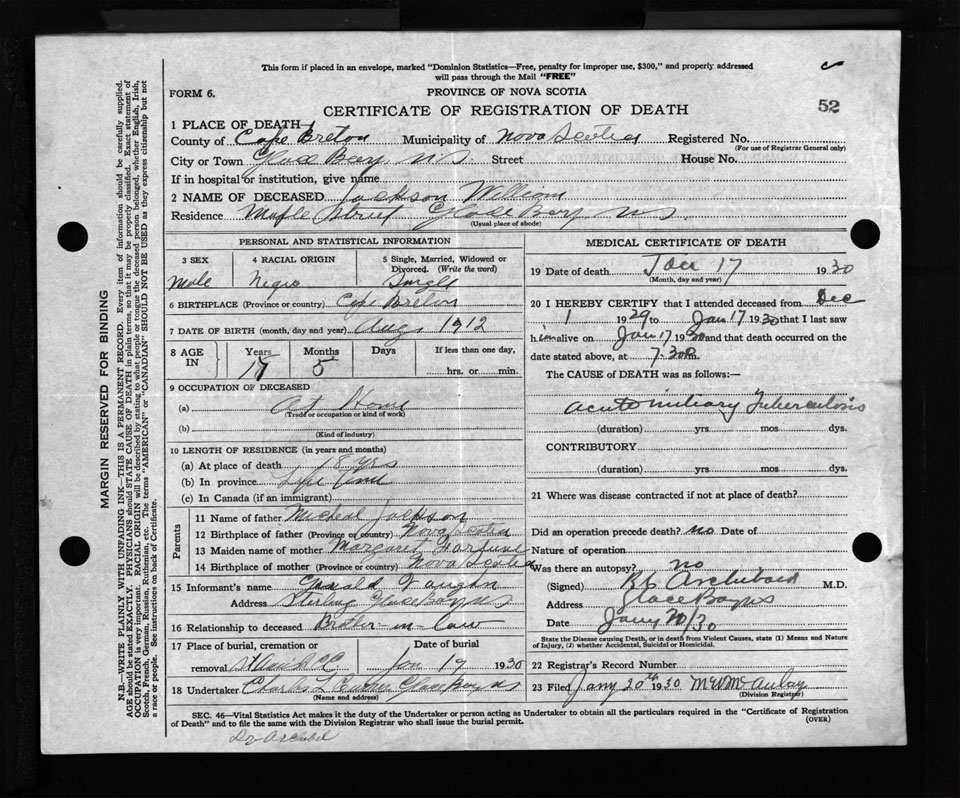 This form if placed in an envelope, marked "Dominion Statistics—Free, penalty for improper use, $300," and properly addressed
will pass through the Mail "FREE"
FORM 6.
PROVINCE OF NOVA SCOTIA
CERTIFICATE OF REGISTRATION OF DEATH
52
1 PLACE OF DEATH—
County of Cape Breton Municipality of Nova Scotia Registered No.
(For use of Registrar General only)
City or Town Glace Bay N.S. Street House No.
If in hospital or institution, give name
2 NAME OF DECEASED Jackson William
Residence Maple Street Glace Bay N.S.
(Usual place of abode)
PERSONAL AND STATISTICAL INFORMATION
3 SEX
Male
4 RACIAL ORIGIN
Negro
5 Single, Married, Widowed or
Divorced. (Write the word)
Single
6 BIRTHPLACE (Province or country) Cape Breton
7 DATE OF BIRTH (month, day and year) Aug 1912
8 AGE IN
Years Months Days If less than one day,
17 5 hrs. or min.
9 OCCUPATION OF DECEASED
(a) At Home
(Trade or occupation or kind of work)
(b)
(Kind of industry)
10 LENGTH OF RESIDENCE (in years and months)
(a) At place of death 18 yrs
(b) In province Life time
(c) In Canada (if an immigrant)
Parents
11 Name of father Micheal Jackson
12 Birthplace of father (Province or country) Nova Scotia
13 Maiden name of mother Margaret
14 Birthplace of mother (Province or country) Nova Scotia
15 Informant's name Vaughn
Address Sterling Glace Bay N.S.
16 Relationship to deceased Brother-in-law
17 Place of burial, cremation or
removal
Date of burial
Jan 19 1930
18 Undertaker Charles L Glace Bay N.S.
(Name and address)
MEDICAL CERTIFICATE OF DEATH
19 Date of death Jan 17 1930
(Month, day and year)
20 I HEREBY CERTIFY that I attended deceased from Dec
1 1929 to Jan 17 1930 that I last saw
him alive on Jan 17 1930 and that death occurred on the
date stated above, at 7.30 m.
The CAUSE of DEATH was as follows:—
Acute miliary Tuberculosis
(duration) yrs mos dys.
CONTRIBUTORY
(duration) yrs. mos. dys.
21 Where was disease contracted if not at place of death?
Did an operation precede death? no Date of
Nature of operation
Was there an autopsy? no
(Signed) Archibald M.D.
Address Glace Bay N.S.
Date Jany 20/30
State the Disease causing Death, or in death from Violent Causes, state (1) Means and Nature
of Injury, (2) whether Accidental, Suicidal or Homicidal.
22 Registrar's Record Number
23 Filed Jany 20th 1930
(Division Registrar)
SEC. 46—Vital Statistics Act makes it the duty of the Undertaker or person acting as Undertaker to obtain all the particulars required in the "Certificate of Registration
of Death" and to file the same with the Division Registrar who shall issue the burial permit.
(OVER)
MARGIN RESERVED FOR BINDING
N.B.—WRITE PLAINLY WITH UNFADING INK—THIS IS A PERMANENT RECORD. Every item of information should be carefully supplied.
AGE should be stated EXACTLY. PHYSICIANS should STATE CAUSE OF DEATH in plain terms, so that it may be properly classified. Exact statement of
OCCUPATION is very important. RACIAL ORIGIN will be described by stating to what people or tongue the deceased person belonged, whether English, Irish,
Scotch, French, German, Russian, Ruthenian, etc. The terms "AMERICAN" or "CANADIAN" SHOULD NOT BE USED as they express citizenship but not
a race or people. See instructions on back of Certificate.